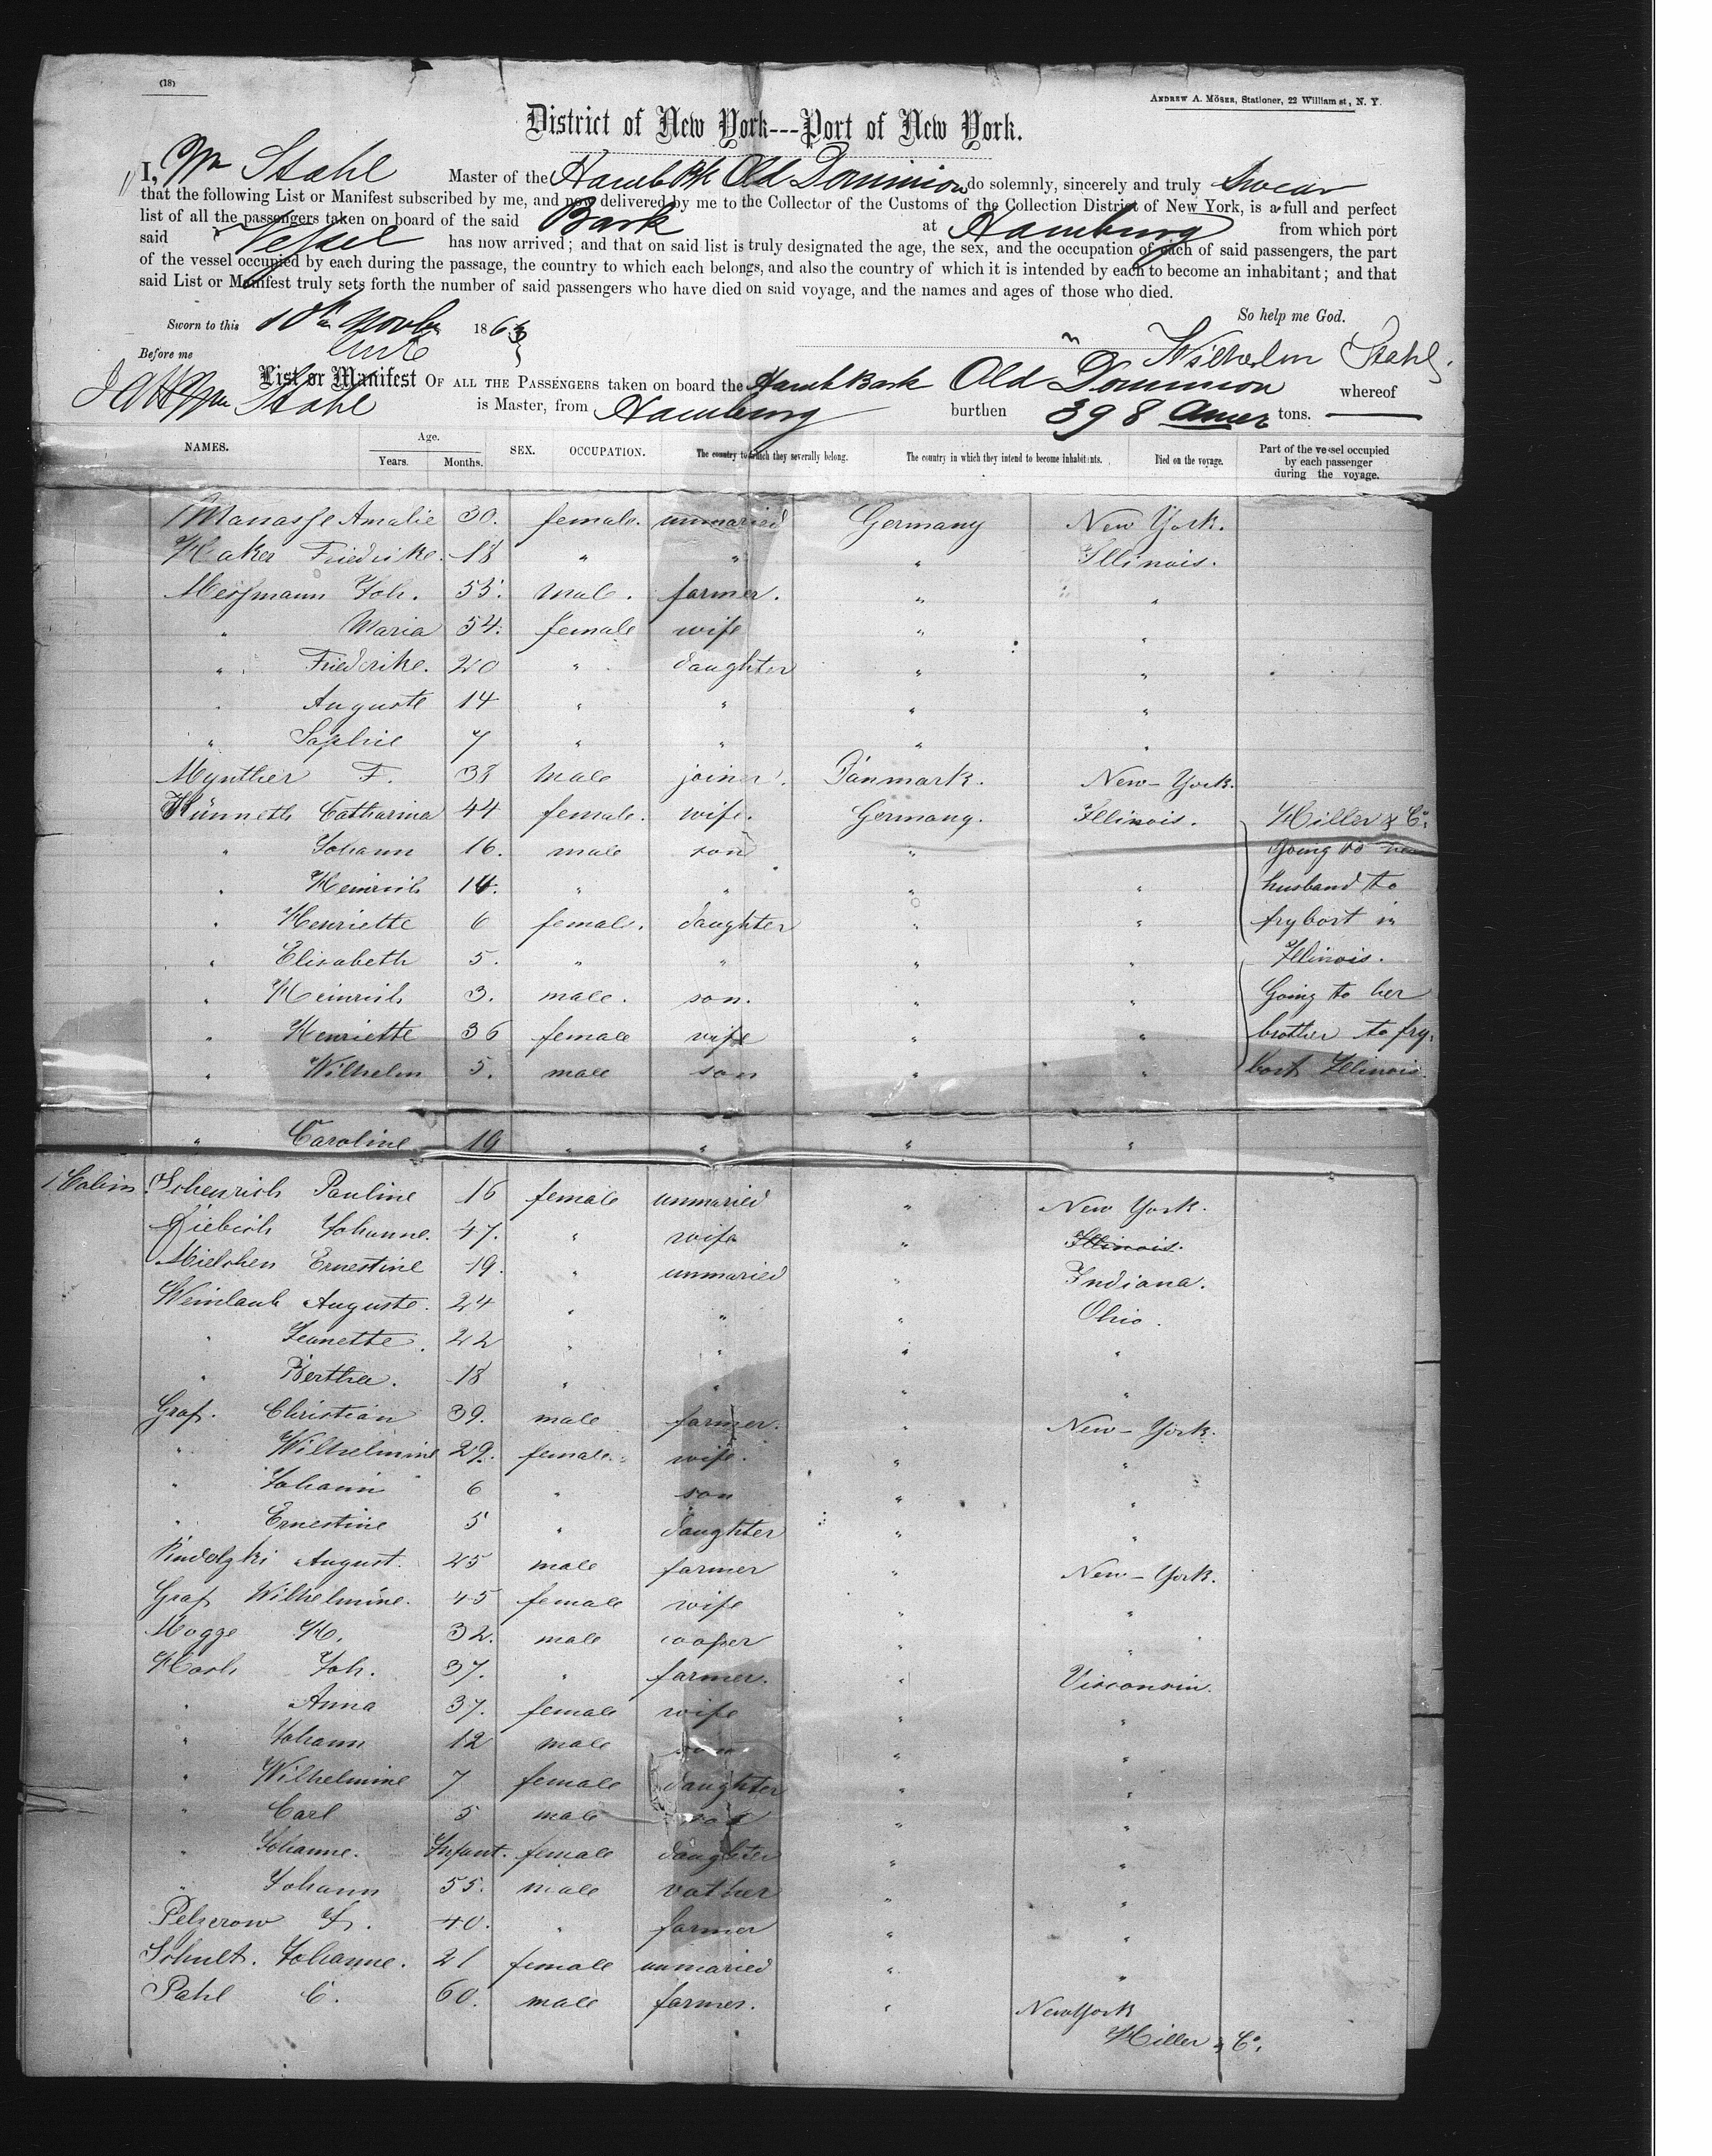 (18)
ANDREW A. MÖSER, Stationer, 22 William st, N. Y.
District of New York---Port of New York.
I, Wm Stahl Master of the Hamb Bk Old Dominion do solemnly, sincerely and truly Swear
that the following List or Manifest subscribed by me, and now delivered by me to the Collector of the Customs of the Collection District of New York, is a full and perfect
list of all the passengers taken on board of the said Bark at Hamburg from which port
said Vessel has now arrived; and that on said list is truly designated the age, the sex, and the occupation of each of said passengers, the part
of the vessel occupied by each during the passage, the country to which each belongs, and also the country of which it is intended by each to become an inhabitant; and that
said List or Manifest truly sets forth the number of said passengers who have died on said voyage, and the names and ages of those who died.
So help me God.
Sworn to this 10th Novbr 1863
Wilhelm Stahl.
Before me
List or Manifest OF ALL THE PASSENGERS taken on board the Hamb Bark Old Dominion whereof
Wm Stahl is Master, from Hamburg burthen 398 Amer tons.
NAMES. Age. Years. Months. SEX. OCCUPATION. The country to which they severally belong. The country in which they intend to become inhabitants. Died on the voyage. Part of the vessel occupied by each passenger during the voyage.
Manasse Amalie 30. female. unmaried Germany New York.
Haker Friedrike. 18 " " " Illinois.
Messmann Joh. 55. male. farmer. " "
" Maria 54. female wife " "
" Friederike. 20 " daughter " "
" Auguste 14 " " " "
" Sophie 7 " " " "
Mynthier F. 38 male joiner. Danmark. New-York.
Hünneth Catharina 44 female. wife. Germany. Illinois. Hiller & Co.
" Johann 16. male son " " Going to her
" Heinrich 14. " " " " husband to
" Henriette 6 female. daughter " " frybort in
" Elisabeth 5. " " " " Illinois.
" Heinrich 3. male. son. " " Going to her
" Henriette 36 female wife " " brother to fry
" Wilhelm 5. male son " " bort Illinois.
" Caroline 19 " " " "
1 Cabin Schenrich Pauline 16 female unmaried " New York.
Liebich Johanne. 47. " wife " Illinois.
Mielchen Ernestine 19. " unmaried " Indiana.
Weinlaub Auguste. 24 " " " Ohio.
" Jeanette. 22 " " " "
" Bertha. 18 " " " "
Graf. Christian 39. male farmer. " New-York.
" Wilhelmine 29. female. wife. " "
" Johann 6 " son " "
" Ernestine 5 " daughter " "
August. 25 male farmer " New-York.
Graf Wilhelmine. 45 female wife " "
Mogge H. 32. male cooper " "
Hash Joh. 37. " farmer. " Visconsin.
" Anna 37. female wife " "
" Johann 12 male son " "
" Wilhelmine 7 female daughter " "
" Carl 5 male son " "
" Johanne. Infant. female daughter " "
" Johann 55. male vather " "
Pelzerow Fr. 40. " farmer " "
Schult. Johanne. 21 female unmaried " "
Pahl C. 60. male farmer. " New York
Hiller & Co.